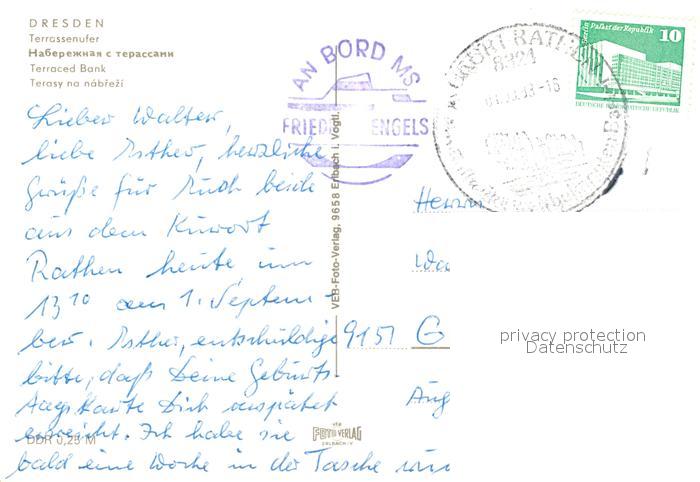 DRESDEN
Terrassenufer
Набережная с терассами
Terraced Bank
Terasy na nábřeží
Lieber Walter,
liebe Esther, herzliche
Grüße für Euch beide
aus dem Kurort
Rathen heute um
13¹⁰ am 1. Septem-
ber. Esther, entschuldige
bitte, daß Deine Geburts-
tagskarte Dich verspätet
erreicht. Ich habe sie
bald eine Woche in der Tasche
DDR 0,25 M
AN BORD MS
FRIED ENGELS
VEB-Foto-Verlag, 9658 Erlbach i. Vogtl.
VEB
FOTO VERLAG
ERLBACH/V.
KURORT RATHEN
8324
Berlin, Palast der Republik
10
DEUTSCHE DEMOKRATISCHE REPUBLIK
Herrn
Wa
9151 G
Aug
privacy protection
Datenschutz